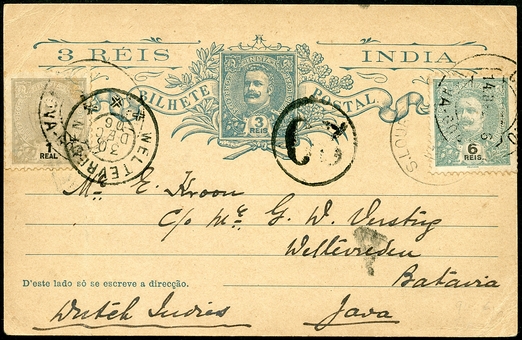 3 RÉIS INDIA
BILHETE POSTAL
INDIA
3
REIS
1
REAL
6
REIS.
WELTEVREDEN
NOVA
Mr. E. Kroon
c/o Mr. G. W. Versteeg
Weltevreden
Batavia
D'este lado só se escreve a direcção.
Dutch Indies Java